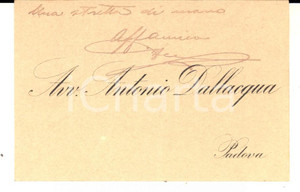 Una stretta di mano
Aff amico
Avv. Antonio Dallacqua
Padova